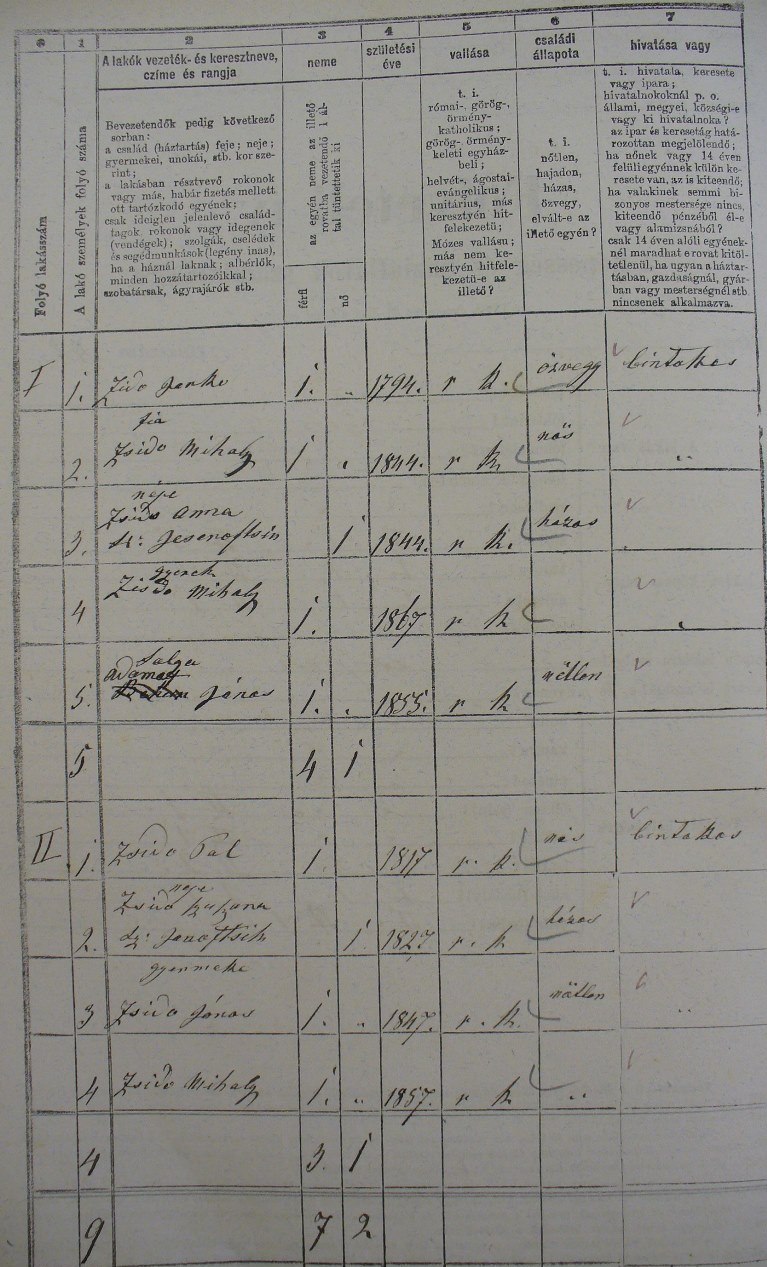 0 1 2 3 4 5 6 7
Folyó lakásszám
A lakó személyek folyó száma
A lakók vezeték- és keresztneve,
czíme és rangja
Bevezetendők pedig következő
sorban:
a család (háztartás) feje; neje;
gyermekei, unokái, stb. kor sze-
rint;
a lakásban résztvevő rokonok
vagy más, habár fizetés mellett
ott tartózkodó egyének;
csak ideiglen jelenlevő család-
tagok, rokonok vagy idegenek
(vendégek); szolgák, cselédek
és segédmunkások (legény inas),
ha a háznál laknak; albérlők,
minden hozzátartozóikkal;
szobatársak, ágyrajárók stb.
neme
az egyén neme az illető
rovatba vezetendő 1 ál-
tal tüntettetik ki
férfi
nő
születési
éve
vallása
t. i.
római-, görög-,
örmény-
katholikus;
görög- örmény-
keleti egyház-
beli;
helvét-, ágostai-
evángelikus;
unitárius, más
keresztyén hit-
felekezetű;
Mózes vallásu;
más nem ke-
resztyén hitfele-
kezetü-e az
illető?
családi
állapota
t. i.
nőtlen,
hajadon,
házas,
özvegy,
elvált-e az
illető egyén?
hivatása vagy
t. i. hivatala, keresete
vagy ipara;
hivatalnokoknál p. o.
állami, megyei, községi-e
vagy ki hivatalnoka?
az ipar és keresetág hatá-
rozottan megjelölendő;
ha nőnek vagy 14 éven
felüliegyénnek külön ke-
resete van, az is kiteendő;
ha valakinek semmi bi-
zonyos mestersége nincs,
kiteendő pénzéből él-e
vagy alamizsnából?
csak 14 éven alóli egyének-
nél maradhat e rovat kitöl-
tetlenül, ha ugyan a háztar-
tásban, gazdaságnál, gyár-
ban vagy mesterségnél stb.
nincsenek alkalmazva.
I 1. Janko 1. „ 1794. r k. özvegy birtokos
fia
2. Zsido Mihaly 1 „ 1844. r k. nös „
neje
Zsido Anna
3. 1 1844. r k. házas „
gyerek
4 Zsido Mihaly 1. 1867 r k „
Solga
5. Adamov János 1. „ 1855. r k nötlen
5 4 1
II 1. Zsido Pal 1. 1817 r. k. nös birtokos
neje
Zsido Zuzana
2. 1. 1827 r. k házas
gyermeke
3 Zsido János 1. „ 1847. r. k. nötlen „
4 Zsido Mihaly 1. „ 1857. r k „
4 3. 1
9 7 2